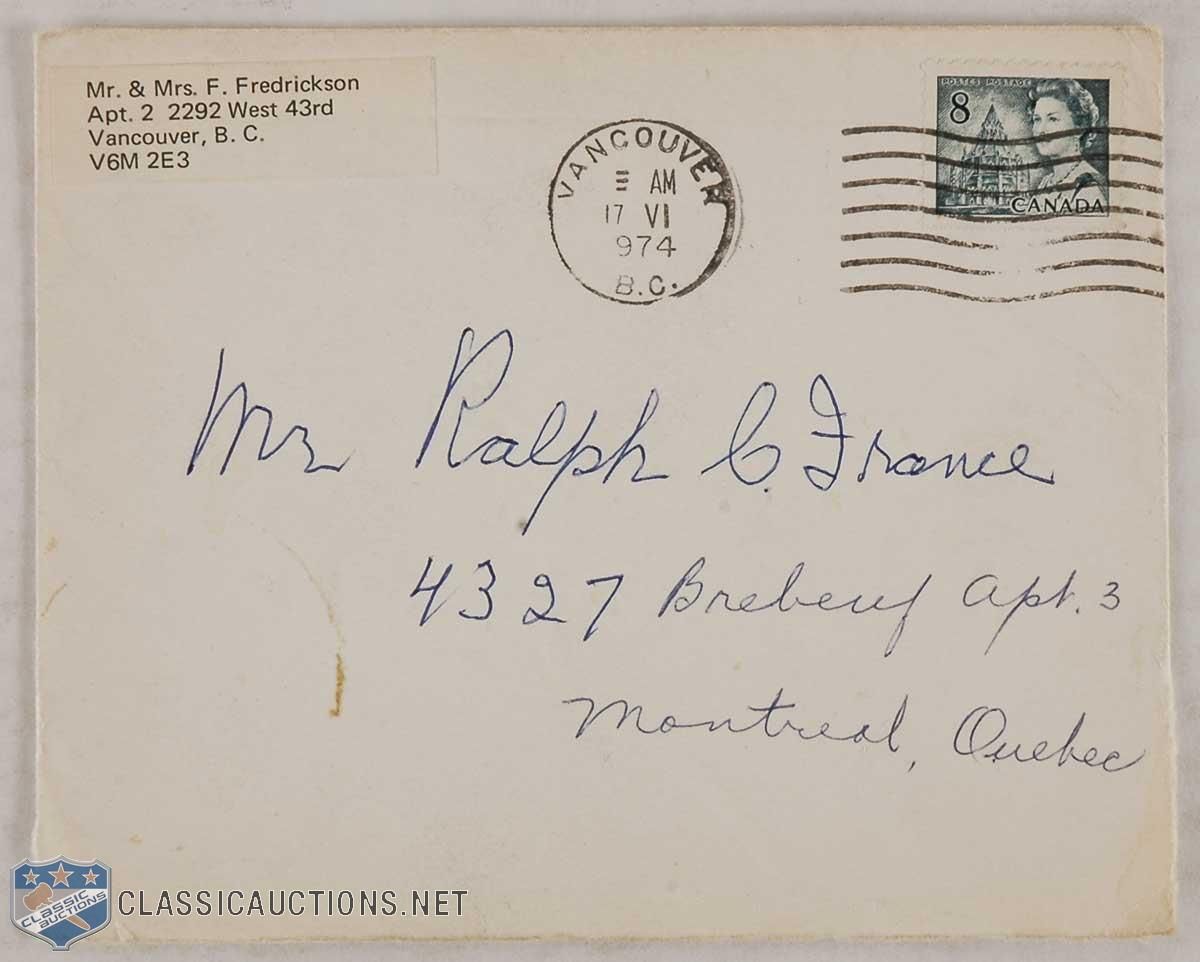 Mr. & Mrs. F. Fredrickson
Apt. 2 2292 West 43rd
Vancouver, B. C.
V6M 2E3
VANCOUVER
AM
17 VI
974
B.C.
POSTES POSTAGE
8
CANADA
Mr Ralph C. France
4327 Brebeuf Apt. 3
Montreal, Quebec
CLASSIC
AUCTIONS
CLASSICAUCTIONS.NET